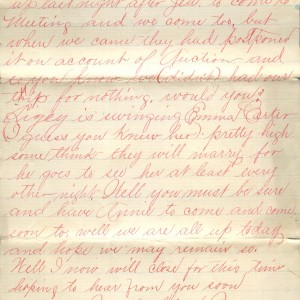 up last night after you to come to
Meeting and we come too, but
when we came they had postponed
it on account of Auction and
so you know we (didnt) had our
trip for nothing, would you?
is swinging Emma Carter
I guess you knew her pretty high
some think they will marry for
he goes to see her at least every
other night Well you must be sure
and have to come and come
soon to, well we are all up today
and hope we may remain so.
Well I now will close for this time
hoping to hear from you soon